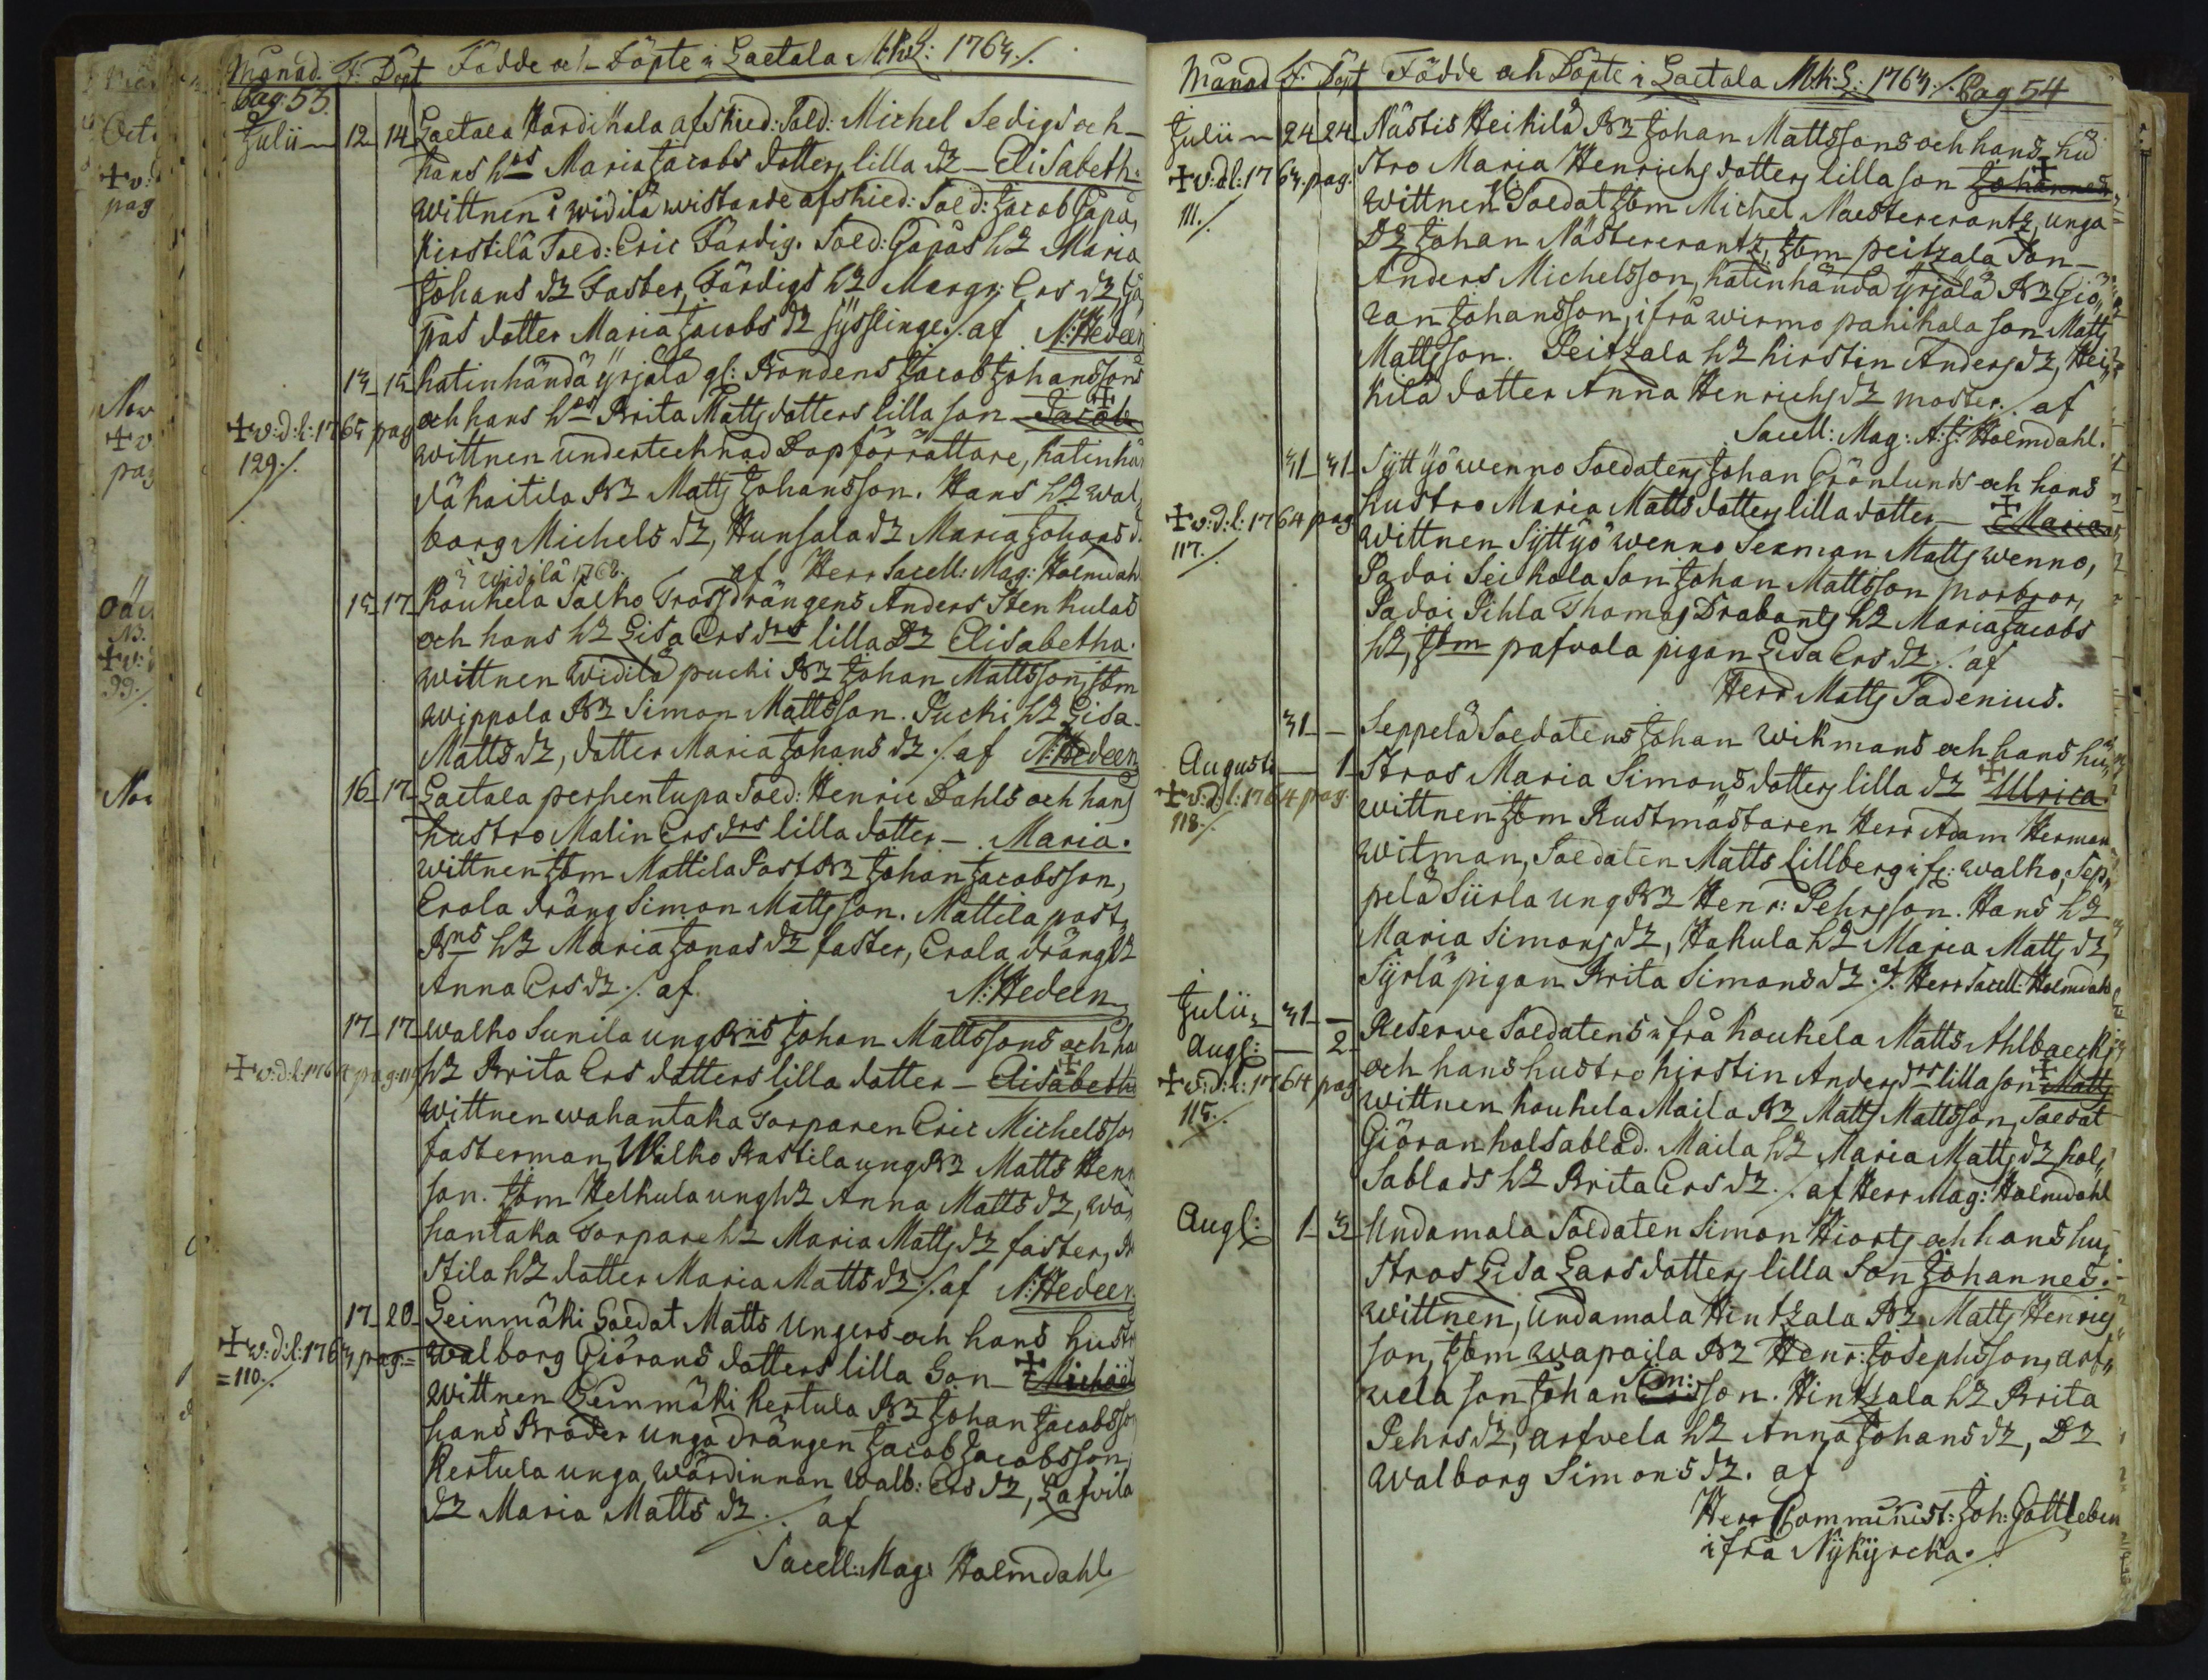 Månad. F. Döpt Födde och Döpte i Laetala M:k:S: 1763./.
Pag: 53.
Julii 12 14 Laetala Hardikala afskied: Sold: Michel Sedigs och
hans h:s Maria Jacobs dotters lilla d2 Elisabeth.
Wittnen i Widilä wistande afskied: Sold: Jacob Gåpå,
Kirstilä Sold: Eric Färdig. Sold: Gåpås h2 Maria
Johans d2 Faster, Färdigs h2 Margr: Ers d2, Gå
pas dotter Maria Jacobs d2 sysslinge./. af N: Hedeen
13 15 Katinhändä Yrjälä gl: Bondens Jacob Johanssons
och hans h:s Brita Matts dotters lilla son Jacob
✝ v:d:l: 1765 pag
129./.
wittnen undertecknad Dopförrättare, Katinhän
dä Kaitila B2 Matts Johansson. Hans h2 Wal
borg Michels d2, Hunsala d2 Maria Johans d.
i Widilä 1768. af Herr Sacell: Mag: Holmdahl
15 17 Koukela Salho Trossdrängens Anders Stenkulas
och hans h2 Lisa Ers drs lilla D2 Elisabetha.
wittnen Widilä pucki B2 Johan Mattsson, Jtm
wippola B2 Simon Mattsson. Pucki h2 Lisa
Matts d2, dotter Maria Johans d2 ./. af N: Hedeen
16 17 Laetala perhentupa Sold: Henric Dahls och hans
hustro Malin Ers drs lilla dotter - Maria.
wittnen Jtm Mattila Post B2 Johan Jacobsson,
Erola dräng Simon Mattsson. Mattila post
Bns h2 Maria Jonas d2 faster, Erola drängs h2
Anna Ers d2 ./. af N: Hedeen
17 17 Walho Sunila ung Bns Johan Mattssons och ha
✝ v:d:l: 1764 pag: 119
h2 Brita Ers dotters lilla dotter - Elisabetha
wittnen wahantaka Torparen Eric Michelsson
fasterman, Walho Rastila ung B2 Matts Henr
son. Jtm Helkula ung h2 Anna Matts d2, wa
hantaka Torpare h2 Maria Matts d2 faster, Ra
stila h2 dotter Maria Matts d2 ./. af N: Hedeen
17 20 Leinmäki Soldat Matts Ungers och hans hustr
✝ v:d:l: 1763 pag:=
=110./.
walborg Giörans dotters lilla Son Michäel
wittnen Leinmäki Kertula B2 Johan Jacobsson
hans Broder unga drängen Jacob Jacobsson
Kertula unga wärdinnan Walb: Ers d2, Lafvila
d2 Maria Matts d2 ./. af
Sacell: Mag: Holmdahl
Månad F: Döpt Födde och Döpte i Laetala M:k:S: 1763./. Pag 54
Julii 24 24 Nästis Heikilä B2 Johan Mattssons och hans hu
✝ v:d:l: 1763. pag.
111./.
stro Maria Henrichs dotters lilla son Johannes
wittnen Soldat Jtm Michel Naestercrantz, unga
D2 Johan Nästercrantz, Jtm peitzala Son
Anders Michelsson, Katinhändä Yrjälä B2 Giö
ran Johansson, ifrå wirmo pahikala son Matts
Mattsson. Peitzala h2 Kirstin Anders d2, Hei
kilä dotter Anna Henrichs d2 moster./. af
Sacell: Mag: A: J: Holmdahl.
31 31 Syttyö wenno Soldatens Johan Grönlunds och hans
✝ v:d:l: 1764 pag.
117./.
hustro Maria Matts dotters lilla dotter Maria
wittnen Syttyö wenno Sexman Matts wenno,
Padoi Seikola Son Johan Mattsson morbror,
Padoi Pihla Thomas Drabants h2 Maria Jacobs
h2, Jtm pafvola pigan Lisa Ers d2 ./. af
Herr Matts Padenius.
31 Seppelä Soldatens Johan Wikmans och hans hu
Augusti 1 stros Maria Simons dotters lilla d2 Ulrica.
✝ v:d:l: 1764 pag.
118./.
wittnen Jtm Rustmästaren Herr Adam Herman
Witman, Soldaten Matts Lillberg ifr: walho, Sep
pelä Siirla ung B2 Henr: Pehrsson. Hans h2
Maria Simons d2, Hakula h2 Maria Matts d2,
Syrlä pigan Brita Simons d2 ./. af Herr Sacell: Holmdahl
Julii 31
Augl: 2 Reserve Soldatens ifrå Koukela Matts Ahlbaecks
✝ v:d:l: 1764 pag
115./.
och hans hustro Kirstin Anders drs lilla son Matts
wittnen Koukela Maila B2 Matts Mattsson, Soldat
Giöran Holsablad. Maila h2 Maria Matts d2 Hol
sablads h2 Brita Ers d2 ./. af Herr Mag: Holmdahl
Augl: 1 3 Undamala Soldaten Simon Hiorts och hans hu
stros Lisa Lars dotters lilla Son Johannes.
wittnen, Undamala Hintzala B2 Matts Henrics
son, Jtm wapaila B2 Henr: Josephsson, arf
vela son Johan Sim: son. Hintzala h2 Brita
Pehrs d2, arfvela h2 Anna Johans d2, D2
Walborg Simons d2. af
Herr Comminist: Joh: Gottleben
ifrå Nykyrcka.